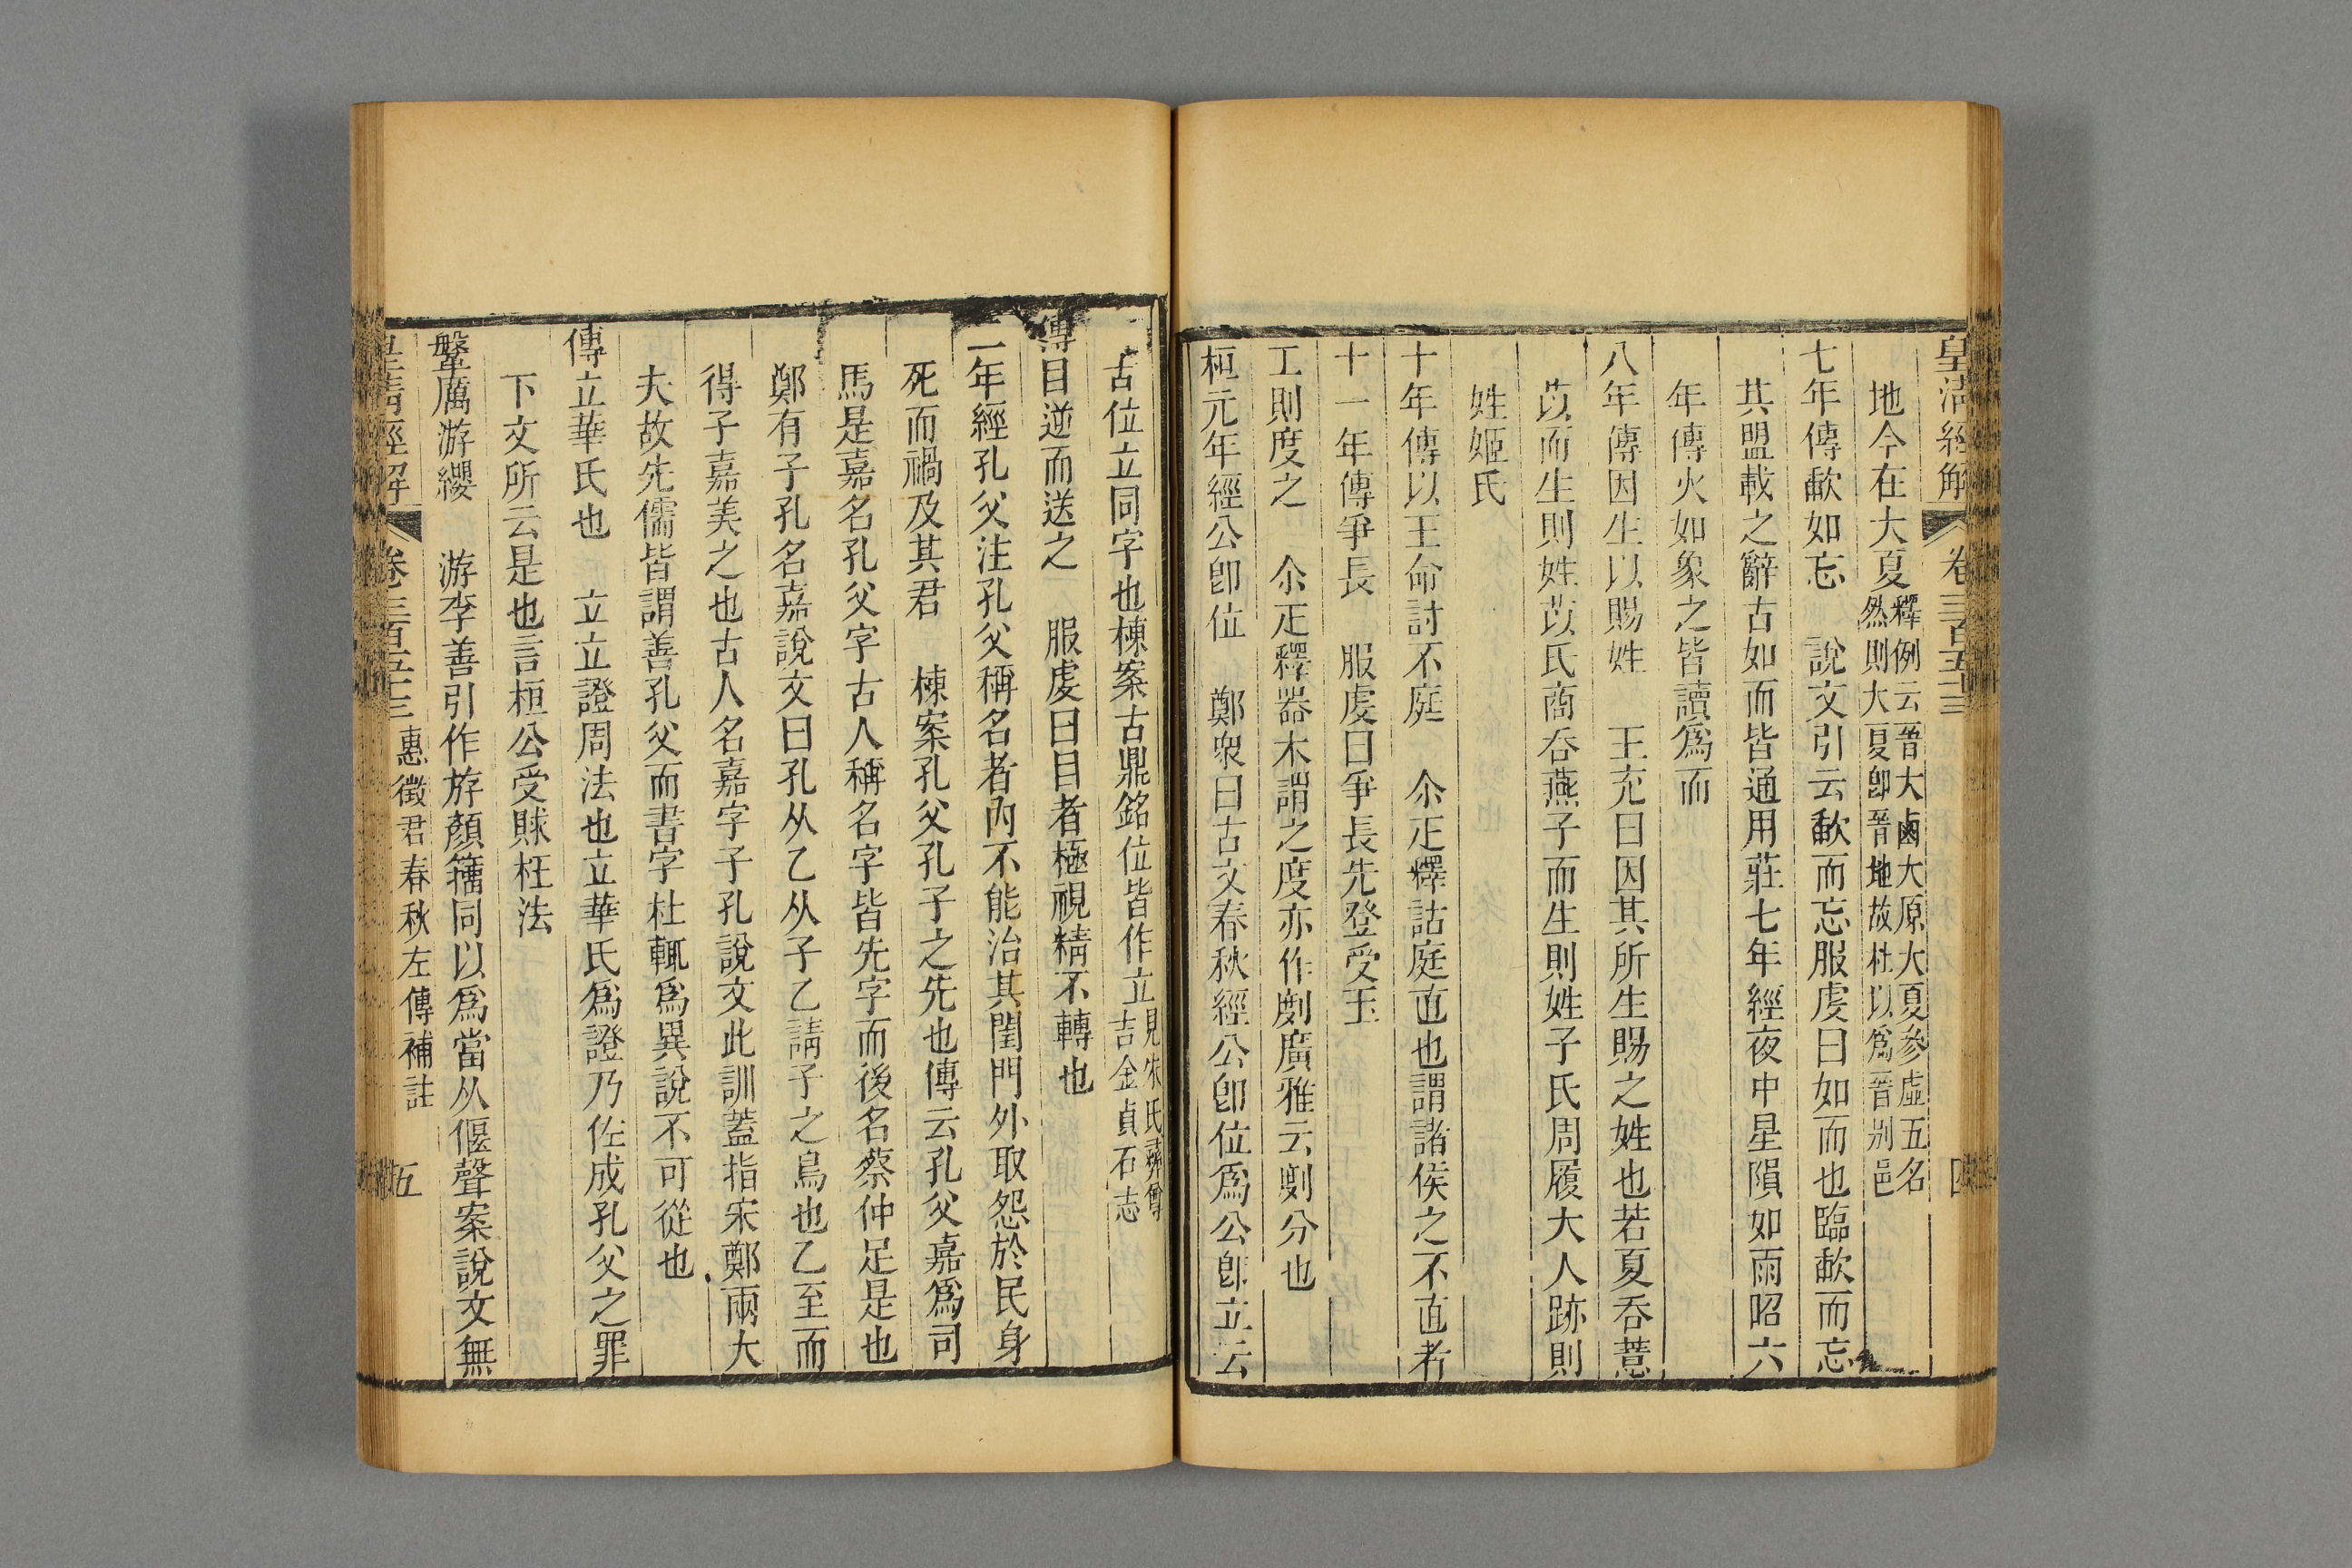 皇清經解 卷三百五十三 四
地今在大夏釋例云晉大鹵大原大夏參虛五名
然則大夏卽晉地故杜以爲晉別邑
七年傳歃如忘 說文引云歃而忘服虔曰如而也臨歃而忘
其盟載之辭古如而皆通用莊七年經夜中星隕如雨昭六
年傳火如象之皆讀爲而
八年傳因生以賜姓 王充曰因其所生賜之姓也若夏吞薏
苡而生則姓苡氏商吞燕子而生則姓子氏周履大人跡則
姓姬氏
十年傳以王命討不庭 尒疋釋詁庭直也謂諸侯之不直者
十一年傳爭長 服虔曰爭長先登受玉
工則度之 尒疋釋器木謂之度亦作劇廣雅云剫分也
桓元年經公卽位 鄭衆曰古文春秋經公卽位爲公卽立云
古位立同字也棟案古鼎銘位皆作立見宋氏彝尊
吉金貞石志
傳目逆而送之 服虔曰目者極視精不轉也
二年經孔父注孔父稱名者內不能治其閨門外取怨於民身
死而禍及其君 棟案孔父孔子之先也傳云孔父嘉爲司
馬是嘉名孔父字古人稱名字皆先字而後名蔡仲足是也
鄭有子孔名嘉說文曰孔从乙从子乙請子之鳥也乙至而
得子嘉美之也古人名嘉字子孔說文此訓蓋指宋鄭兩大
夫故先儒皆謂善孔父而書字杜輒爲異說不可從也
傳立華氏也 立立證周法也立華氏爲證乃佐成孔父之罪
下文所云是也言桓公受賕枉法
鞶厲游纓 游李善引作斿顏籀同以爲當从㫃聲案說文無
皇清經解 卷三百五十三 惠徵君春秋左傳補註 五